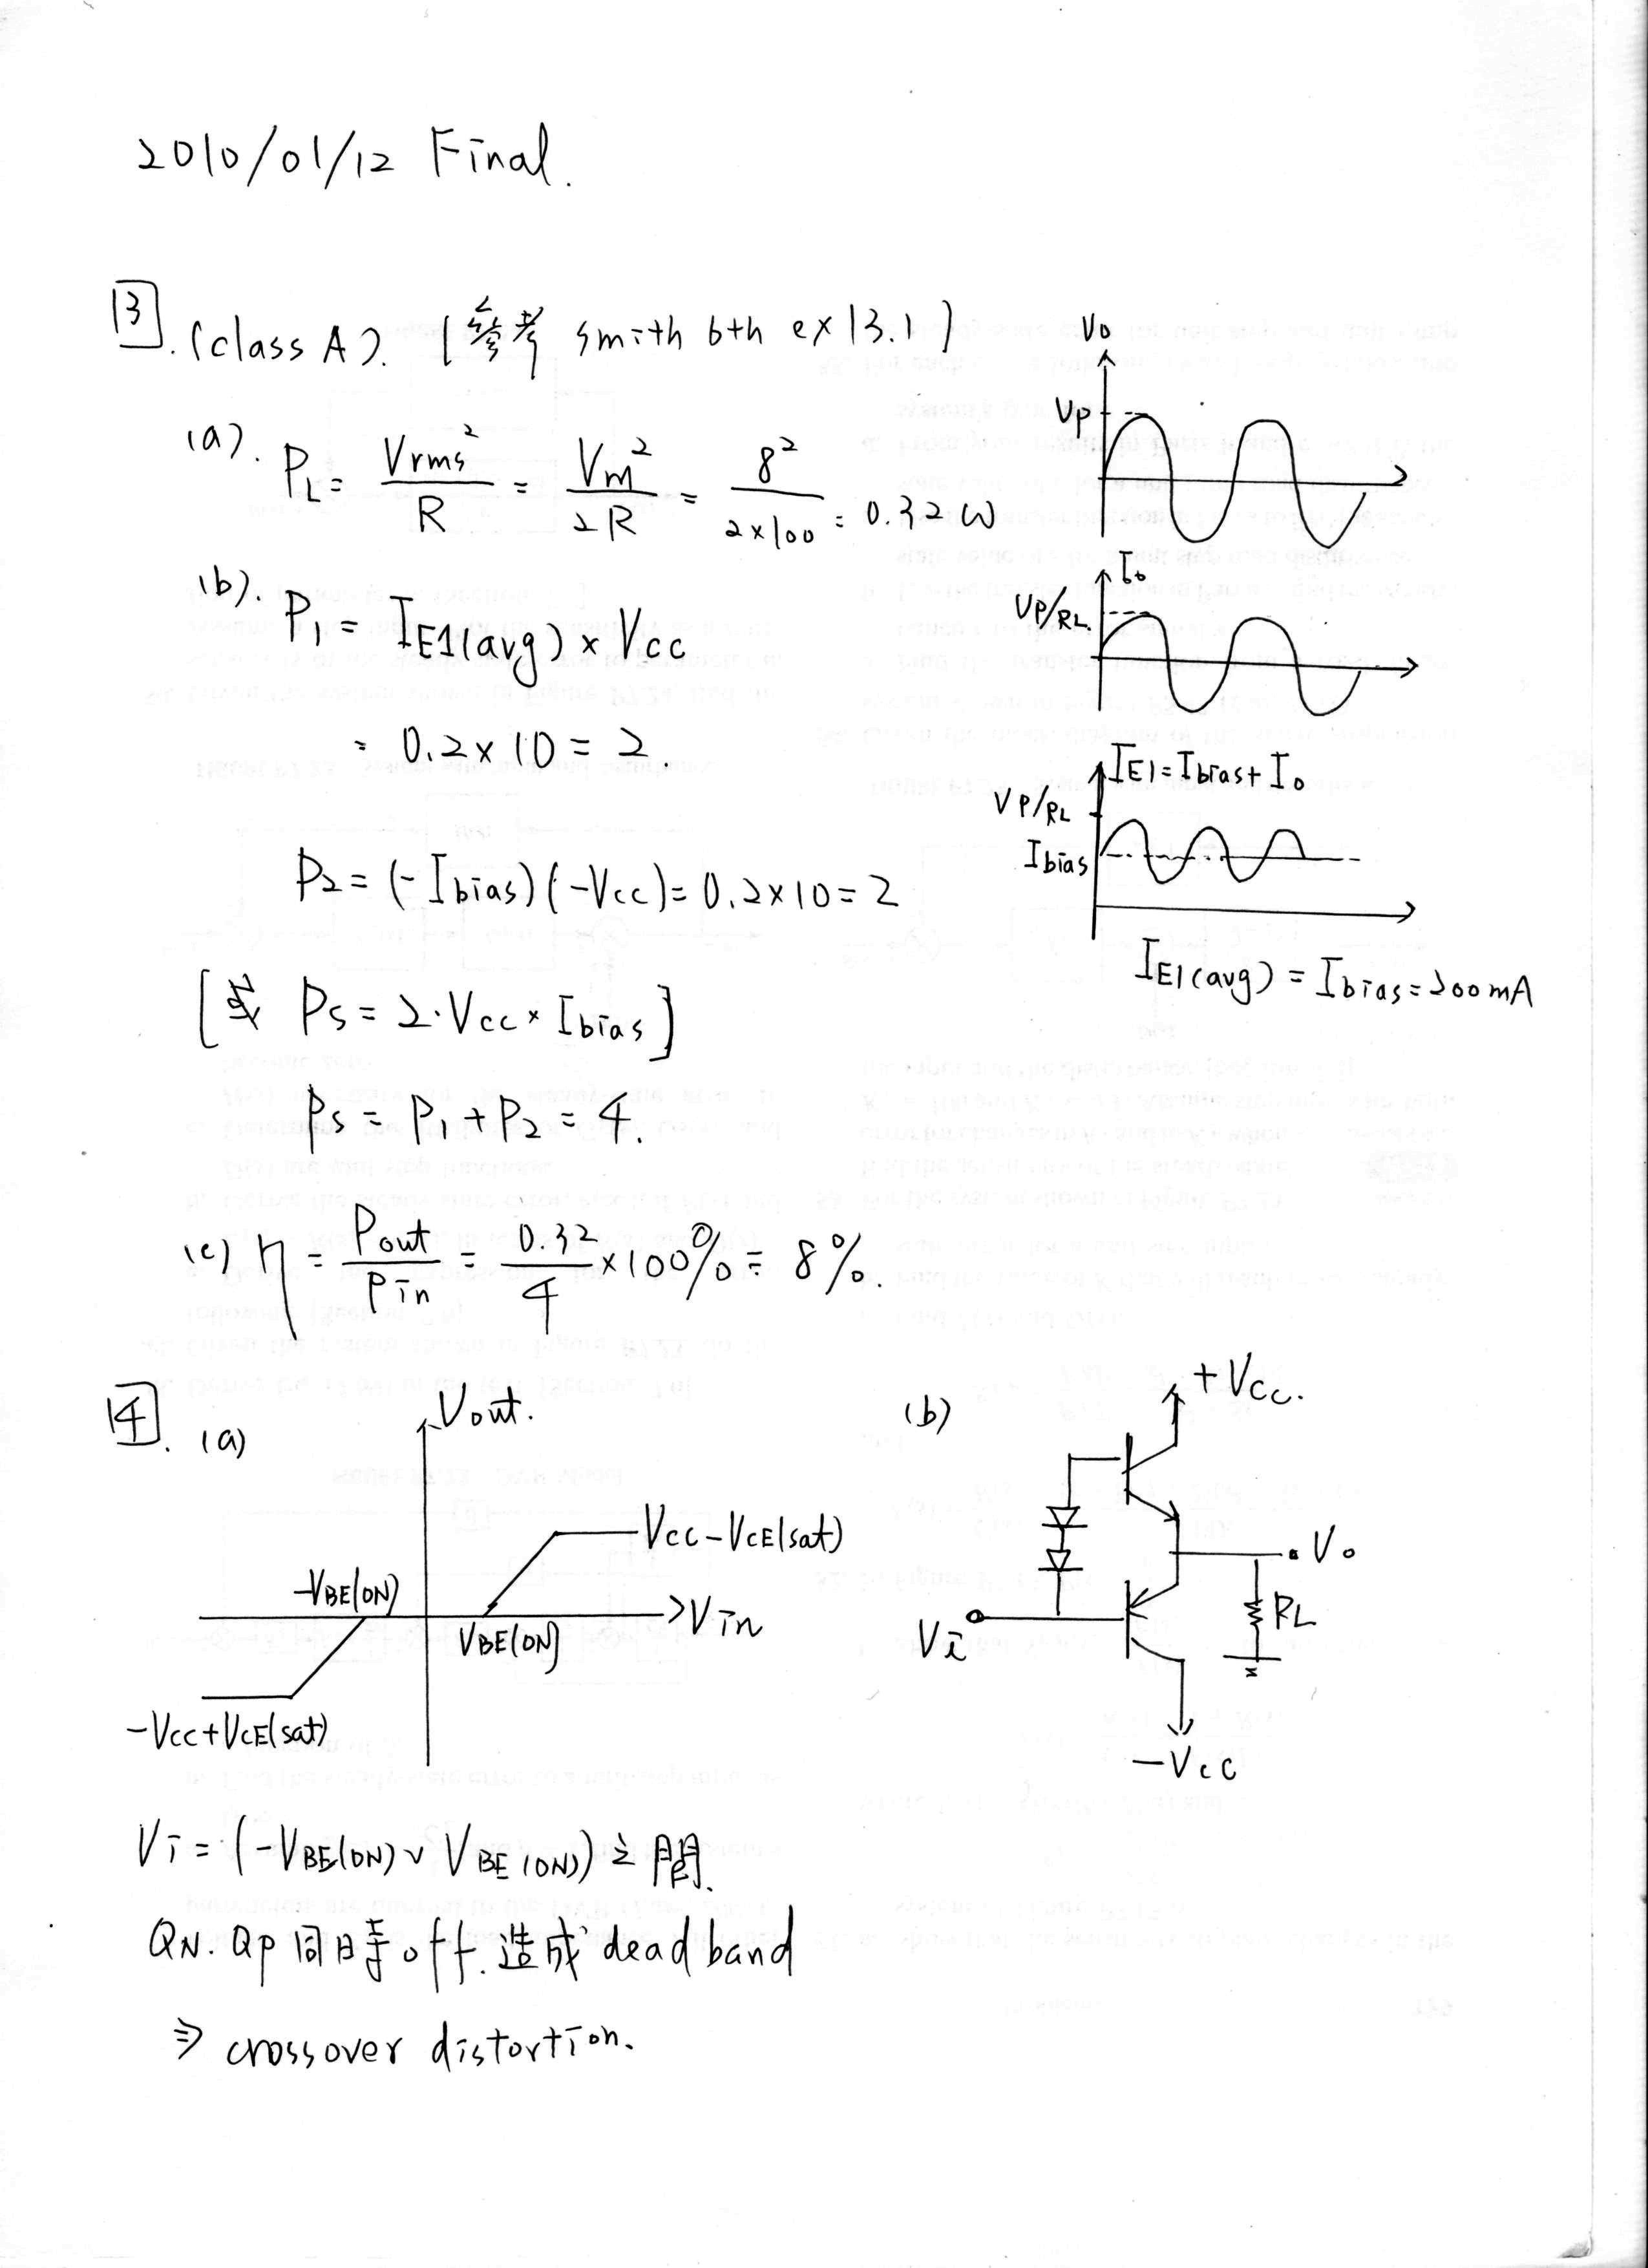 2010/01/12 Final.
3. (class A). [參考 smith 6th ex 13.1]
(a). PL = Vrms²/R = Vm²/2R = 8²/2×100 = 0.32 W
(b). P1 = IE1(avg) × Vcc
= 0.2 × 10 = 2.
P2 = (-Ibias)(-Vcc) = 0.2×10 = 2
[或 Ps = 2·Vcc × Ibias]
Ps = P1 + P2 = 4.
(c) η = Pout/Pin = 0.32/4 × 100% = 8%.
Vo
Vp
Io
Vp/RL
IE1 = Ibias + Io
Vp/RL
Ibias
IE1(avg) = Ibias = 200mA
4. (a)
Vout.
Vcc-VCE(sat)
-VBE(ON)
Vin
VBE(ON)
-Vcc+VCE(sat)
(b)
+Vcc.
Vo
RL
Vi
-Vcc
Vi = (-VBE(ON) ∨ VBE(ON)) 之間.
QN. QP 同時 off. 造成 dead band
⇒ crossover distortion.